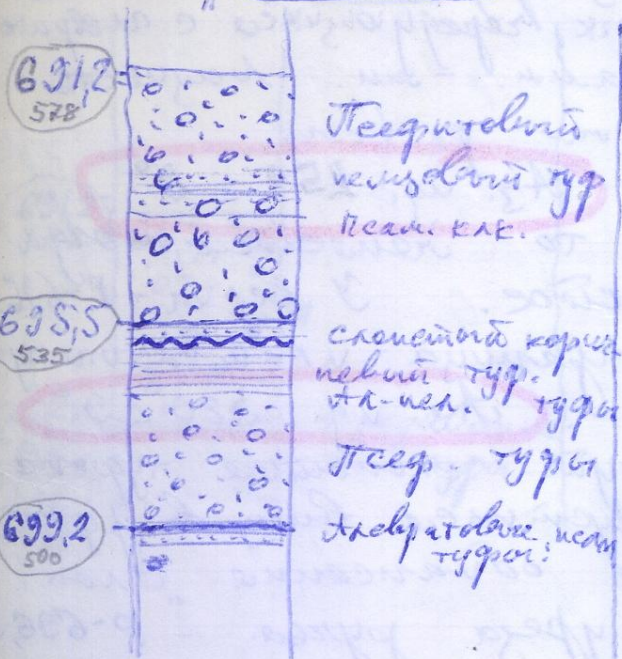 691,2
578
Псефитовый
пемзовый туф
псам. клк.
695,5
535
слоистый корич
невый туф.
Ал-пел. туфы
Псеф. туфы
699,2
500
Алевритовые псам
туфы.